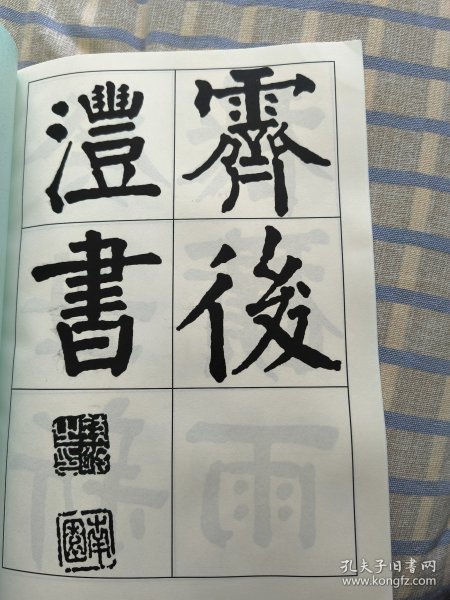 霽後
澧書
南園
孔夫子旧书网
www.kongfz.com